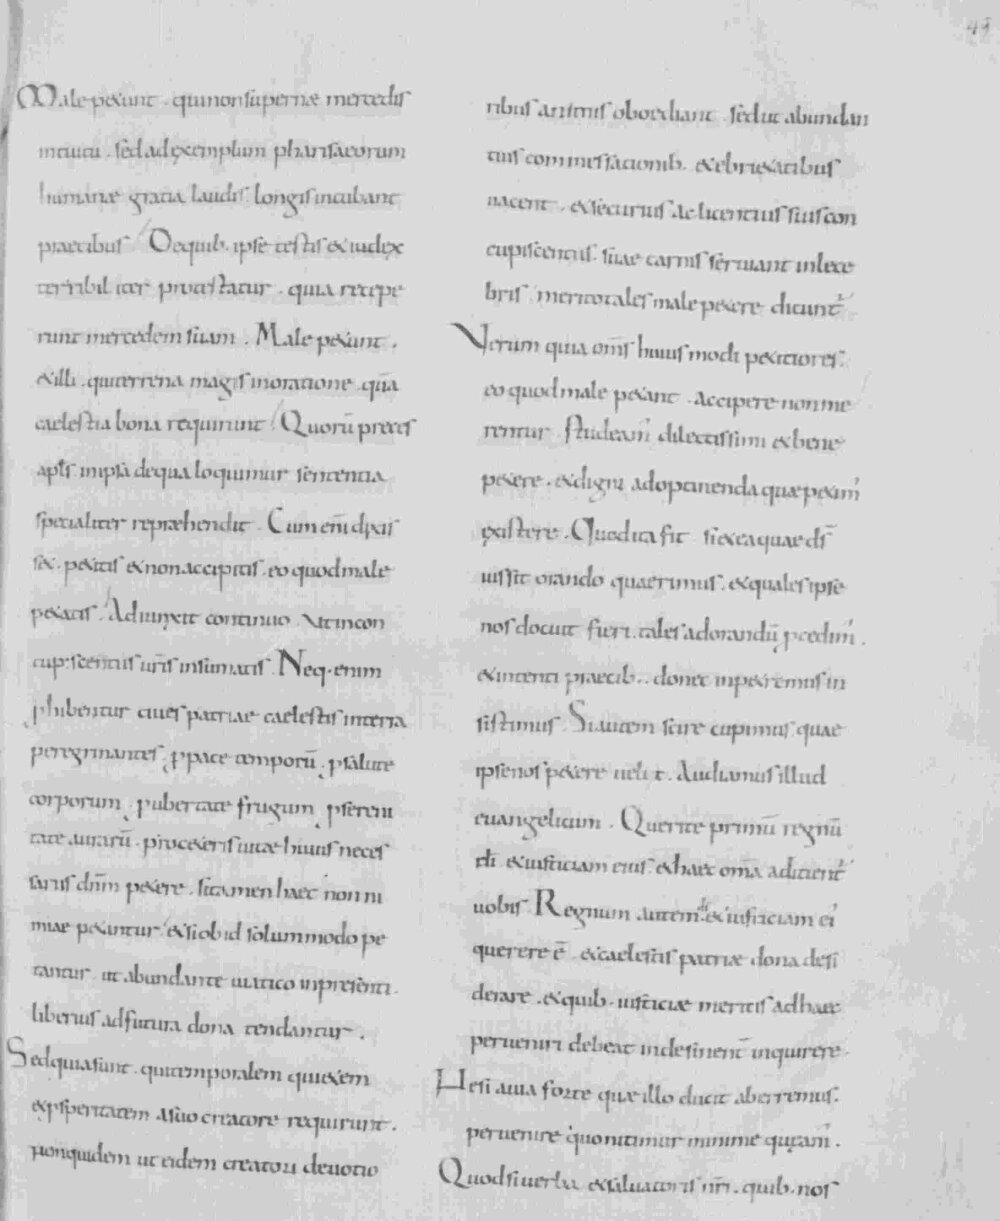 49
Male petunt . qui non supernae mercedis
intuitu . sed ad exemplum pharisaeorum
humanae gratia laudis longis incubant
praecibus . De quib. ipse testis et iudex
terribiliter protestatur . quia recepe
runt mercedem suam . Male petunt .
et illi . qui terrena magis in oratione quā
caelestia bona requirunt . Quorū preces
apłs in ipsa de qua loquimur sententia
specialiter repraehendit . Cum enī dixis
set . petitis et non accipitis . eo quod male
petatis . Adiunxit continuo . Ut in con
cupiscentiis ur̄is insumatis . Neq. enim
ꝓhibentur ciues patriae caelestis in terra
peregrinantes . ꝓ pace temporū . ꝓ salute
corporum . ꝓ ubertate frugum . ꝓ sereni
tate aurarū . ꝓ ceteris uitae huius neces
sariis dn̄m petere . si tamen haec non ni
miae petuntur . et si ob id solummodo pe
tantur . ut abundante uiatico in presenti .
liberius ad futura dona tendantur .
Sed quia sunt . qui temporalem quietem
et ꝓsperitatem a suo creatore requirunt .
non quidem ut eidem creatori deuotio
ribus animis oboediant . sed ut abundan
tius commessationib. et ebrietatibus
uacent . et securius ac licentius suis con
cupiscentiis . suae carnis seruiant inlece
bris . merito tales male petere dicunt̄
Verum quia om̄s huius modi petitores .
eo quod male petant . accipere non me
rentur . Studeam' dilectissimi et bene
petere . et digni ad optinenda quae petim'
existere . Quod ita fit si et ea quae ds̄
iussit orando quaerimus . et quales ipse
nos docuit fieri . tales ad orandū ꝓcedim' .
et intenti praecib. . donec inpetremus in
sistimus . Si autem scire cupimus quae
ipse nos petere uelit . Audiamus illud
euangelicum . Querite primū regnū
dī et iusticiam eius . et haec om̄a adicient̄
uobis . Regnum autem dī et iusticiam ei'
querere ē . et caelestis patriae dona desi
derare . et quib. iusticiae meritis ad haec
perueniri debeat indesinent̄ inquirere .
Ne si a uia forte quae illo ducit aberremus .
peruenire quo nitimur minime queam' .
Quod si uerba et saluatoris nr̄i . quib. nos